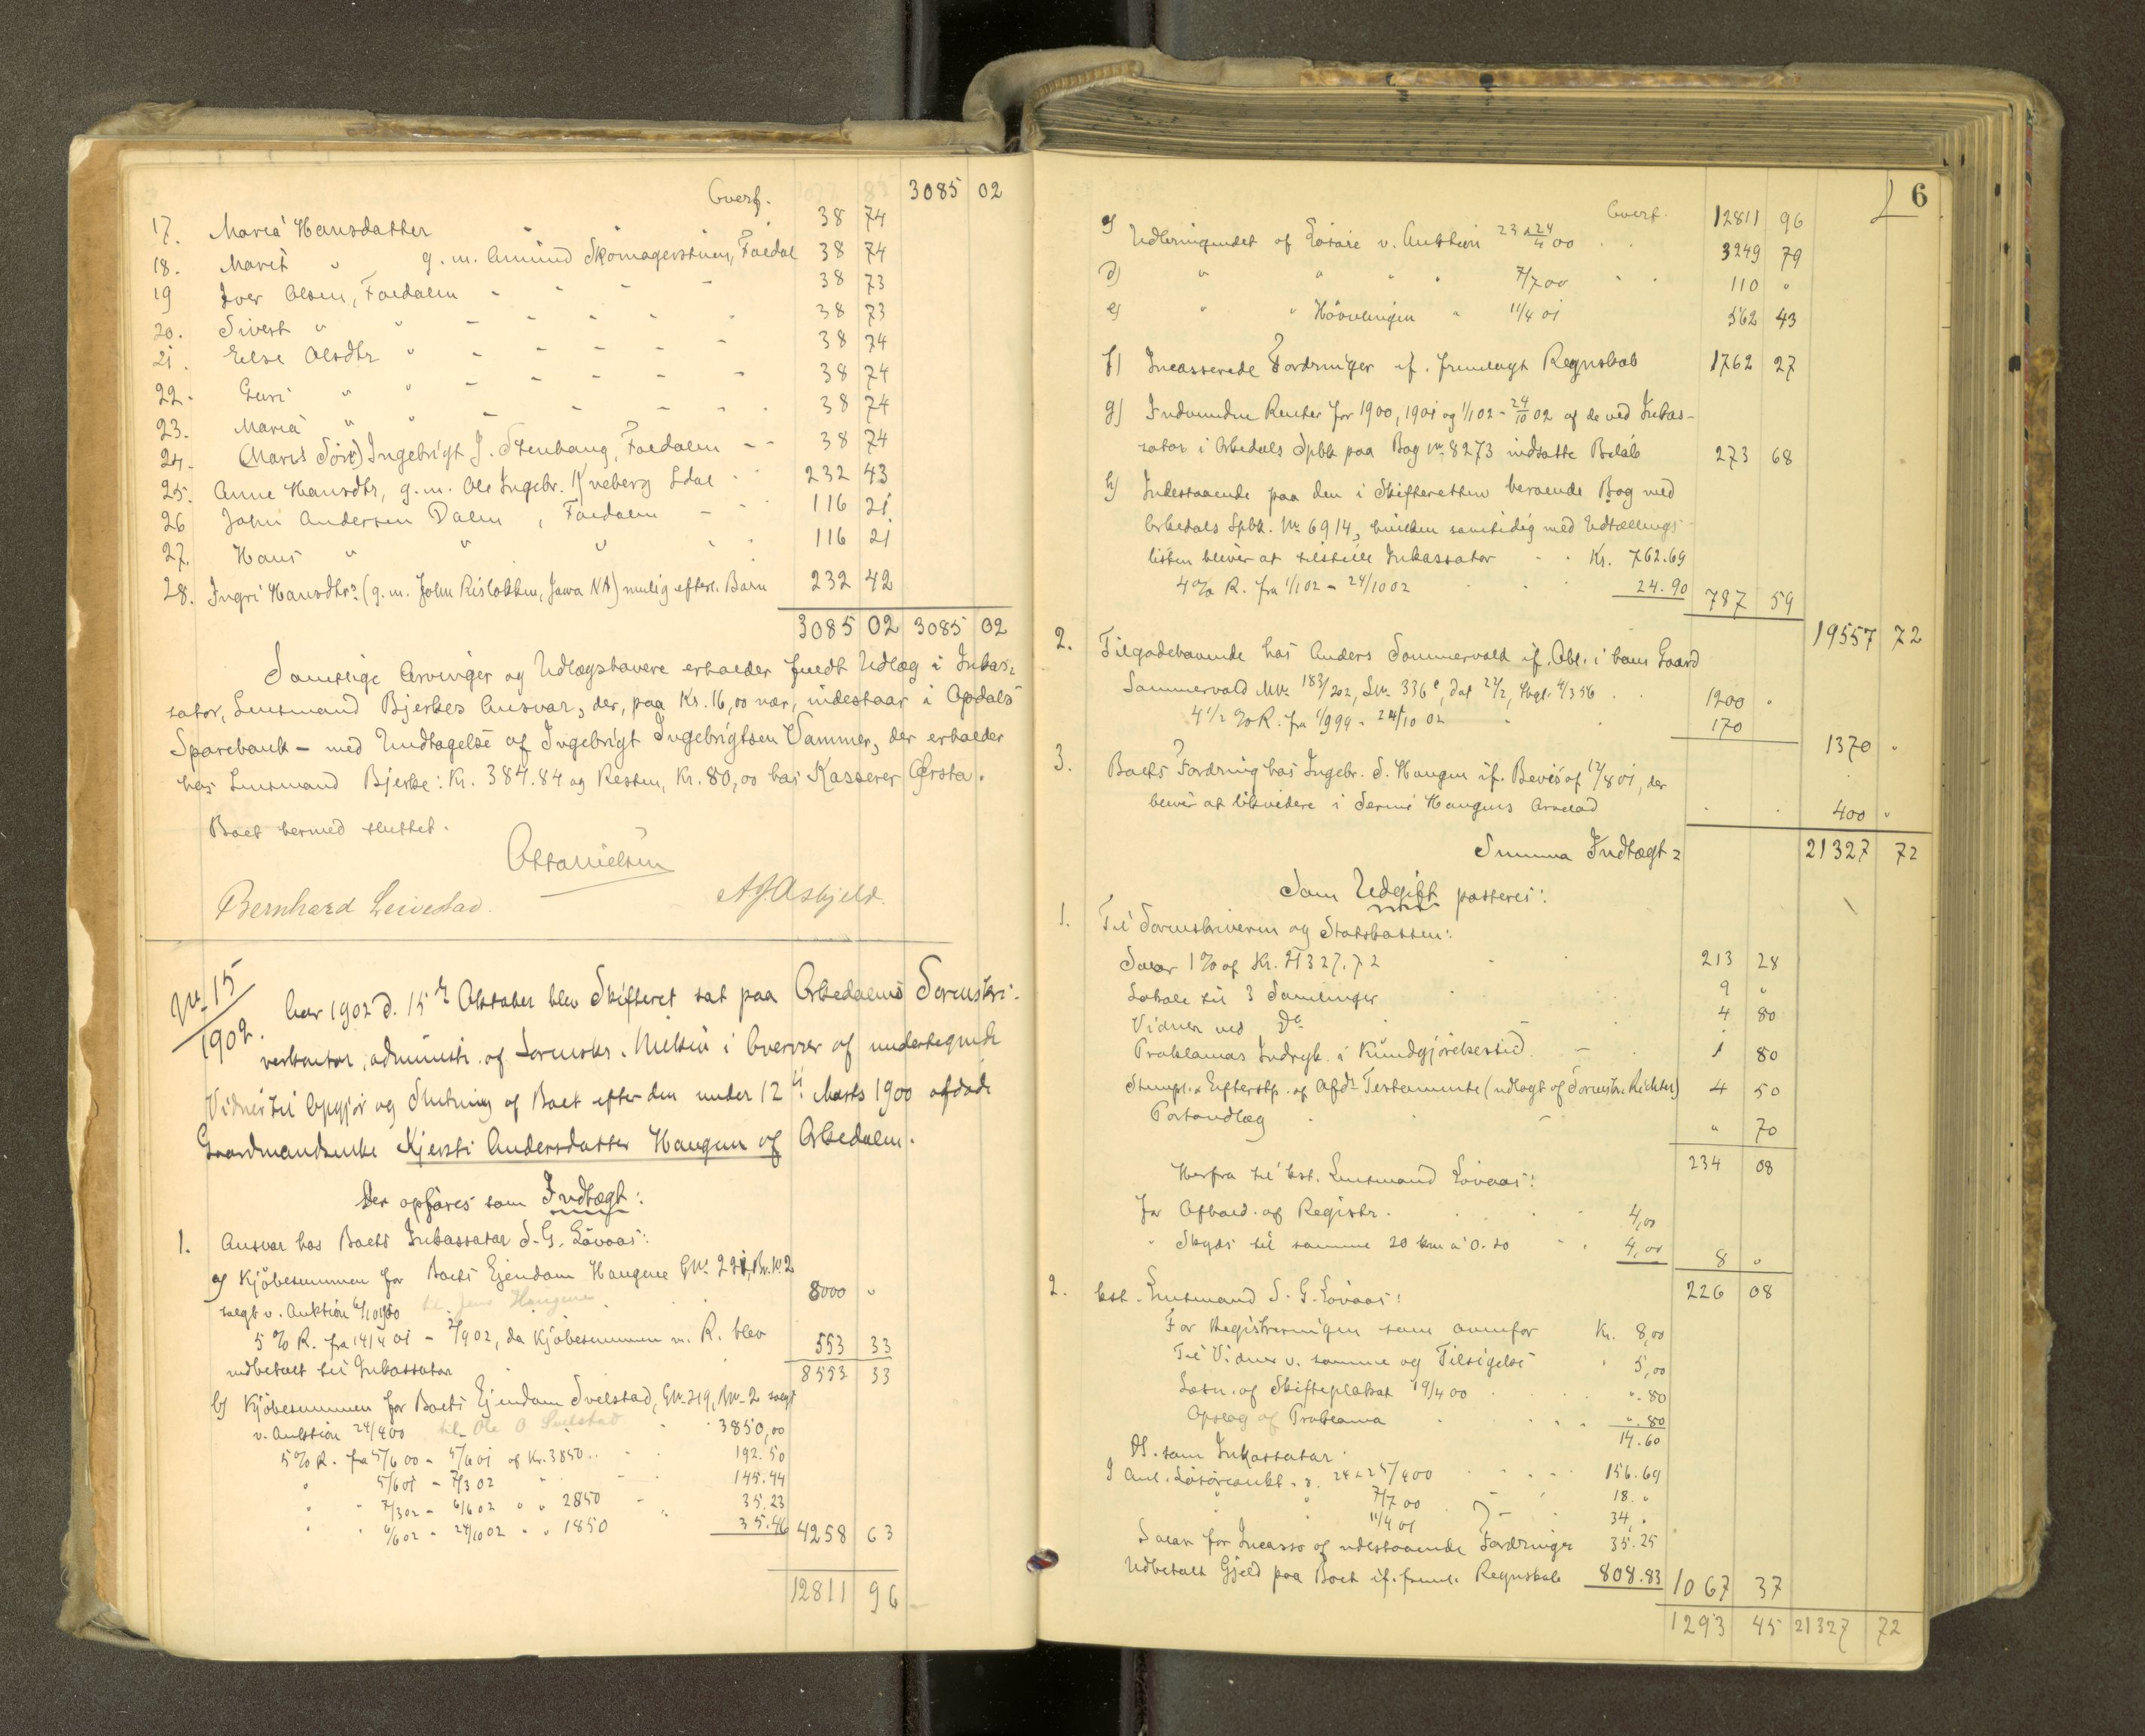 Overf. 3085 02
17. Maria Hansdatter 38 74
18. Marit " g. m. Amund Skomagerstuen, Faedal 38 74
19 Iver Olsen, Foedalen 38 73
20. Sivert " " 38 73
21. Else Olsdtr " 38 74
22. Guri " " 38 74
23. Maria " " 38 74
24. (Marit Sør) Ingebrigt J. Stenhaug, Foedalen 38 74
25. Anne Hansdtr, g. m. Ole Ingebr. Kveberg Sdal 232 43
26 John Andersen Dalen, Foedalen 116 21
27. Hans " " " 116 21
28. Ingri Hansdtr? (g. m. John Risløkken, Jowa NA) mulig efterl. Barn 232 42
3085 02 3085 02
Samtlige Arvinger og Udlægshavere erholder fuldt Udlæg i Inkas-
sator, Lensmand Bjerkes Ansvar, der, paa Kr. 16,00 nær, indestaar i Opdals
Sparebank - med Undtagelse af Ingebrigt Ingebrigtsen Vammer, der erholder
hos Lensmand Bjerke: Kr. 384.84 og Resten, Kr. 80,00 hos Kasserer Ørsta.
Boet hermed sluttet.
Otto Nielsen
Bernhard Leivestad. A J Askjeld.
No. 15
1902.
Aar 1902 d. 15de Oktober blev Skifteret sat paa Orkedalens Sorenskri-
verkontor, administr. af Sorenskr. Nielsen i Overvær af undertegnede
Vidner til Opgjør og Slutning af Boet efter den under 12te Marts 1900 afdøde
Gaardmandsenke Kjersti Andersdatter Haugen af Orkedalen.
Der opføres som Indtægt:
1. Ansvar hos Boets Inkassator S. G. Løvaas:
a) Kjøbesummen for Boets Ejendom Haugene GNo. 221, Br. No. 2
solgt v. Auktion 6/10 1900 til Jens Haugene 8000 "
5 % R. fra 14/4 01 - 2/9 02, da Kjøbesummen m. R. blev
indbetalt til Inkassator 553 33
8553 33
b) Kjøbesummen for Boets Ejendom Svelstad, GNo. 219, BNo. 2 solgt
v. Auktion 24/4 00 til Ole O Svelstad 3850,00
5 % R. fra 5/6 00 - 5/6 01 af Kr. 3850.. 192.50
" 5/6 01 - 7/3 02 " 145.44
" " 7/3 02 - 6/6 02 " " 2850 35.23
" " 6/6 02 - 24/10 02 " " 1850 35.46 4258 63
12811 96
6
Overf. 12811 96
c) Udbringendet af Løsøre v. Auktion 23 & 24/4 00 3249 79
d) " " " " 7/7 00 110 "
e) " " Høvelingen " 11/4 01 562 43
f) Incasserede Fordringer if. fremlagt Regnskab 1762 27
g) Indvundne Renter for 1900, 1901 og 1/1 02 - 24/10 02 af de ved Inkas-
sator i Orkedals Spbk paa Bog No. 8273 indsatte Beløb 273 68
h) Indestaaende paa den i Skifteretten beroende Bog med
Orkedals Spbk. No 6914, hvilken samtidig med Udtællings-
listen bliver at tilstille Inkassator Kr. 762.69
4 % R. fra 1/1 02 - 24/10 02 24.90 787 59
19557 72
2. Tilgodehavende hos Anders Sommervold if. Obl. i hans Gaard
Sommervold MNo. 183/202, LNo. 336e, dat 22/2, thgl. 4/3 56 1200 "
4 1/2 % R. fra 1/9 99 - 24/10 02 170
1370 "
3. Boets Fordring hos Ingebr. S. Haugen if. Bevis af 12/8 01, der
bliver at likvidere i Sermé Haugens Arvelod 400 "
Summa Indtægt = 21327 72
Som Udgift passerer:
1. Til Sorenskriveren og Statskassen:
Salær 1 % af Kr. 21327.72 213 28
Lokale til 3 Samlinger 9 "
Vidner ved Do. 4 80
Proklamas Indryk. i Kundgjørelsestid. 1 80
Stempl. & Efterstp. af Afdes Testamente (udlagt af Sorenskr. Richter) 4 50
Portoudlæg " 70
234 08
Herfra til kst. Lensmand Løvaas:
For Afhold. af Registr. 4,00
" Skyds til samme 20 km a 0.20 4,00 8 "
2. kst. Lensmand S. G. Løvaas: 226 08
For Registreringen som ovenfor Kr. 8,00
Til Vidner v. samme og Tilsigelse " 5,00
Læsn. af Skifteplakat 19/4 00 ".80
Opslag af Proklama ".80
14.60
Ds. som Inkassator
I Anl. Løsøreaukt. d. 24 & 25/4 00 156.69
" " 7/7 00 18. "
11/4 01 34, "
Salær for Incasso af udestaaende Fordringer 35.25
Udbetalt Gjæld paa Boet if. freml. Regnskab 808.83 1067 37
1293 45 21327 72